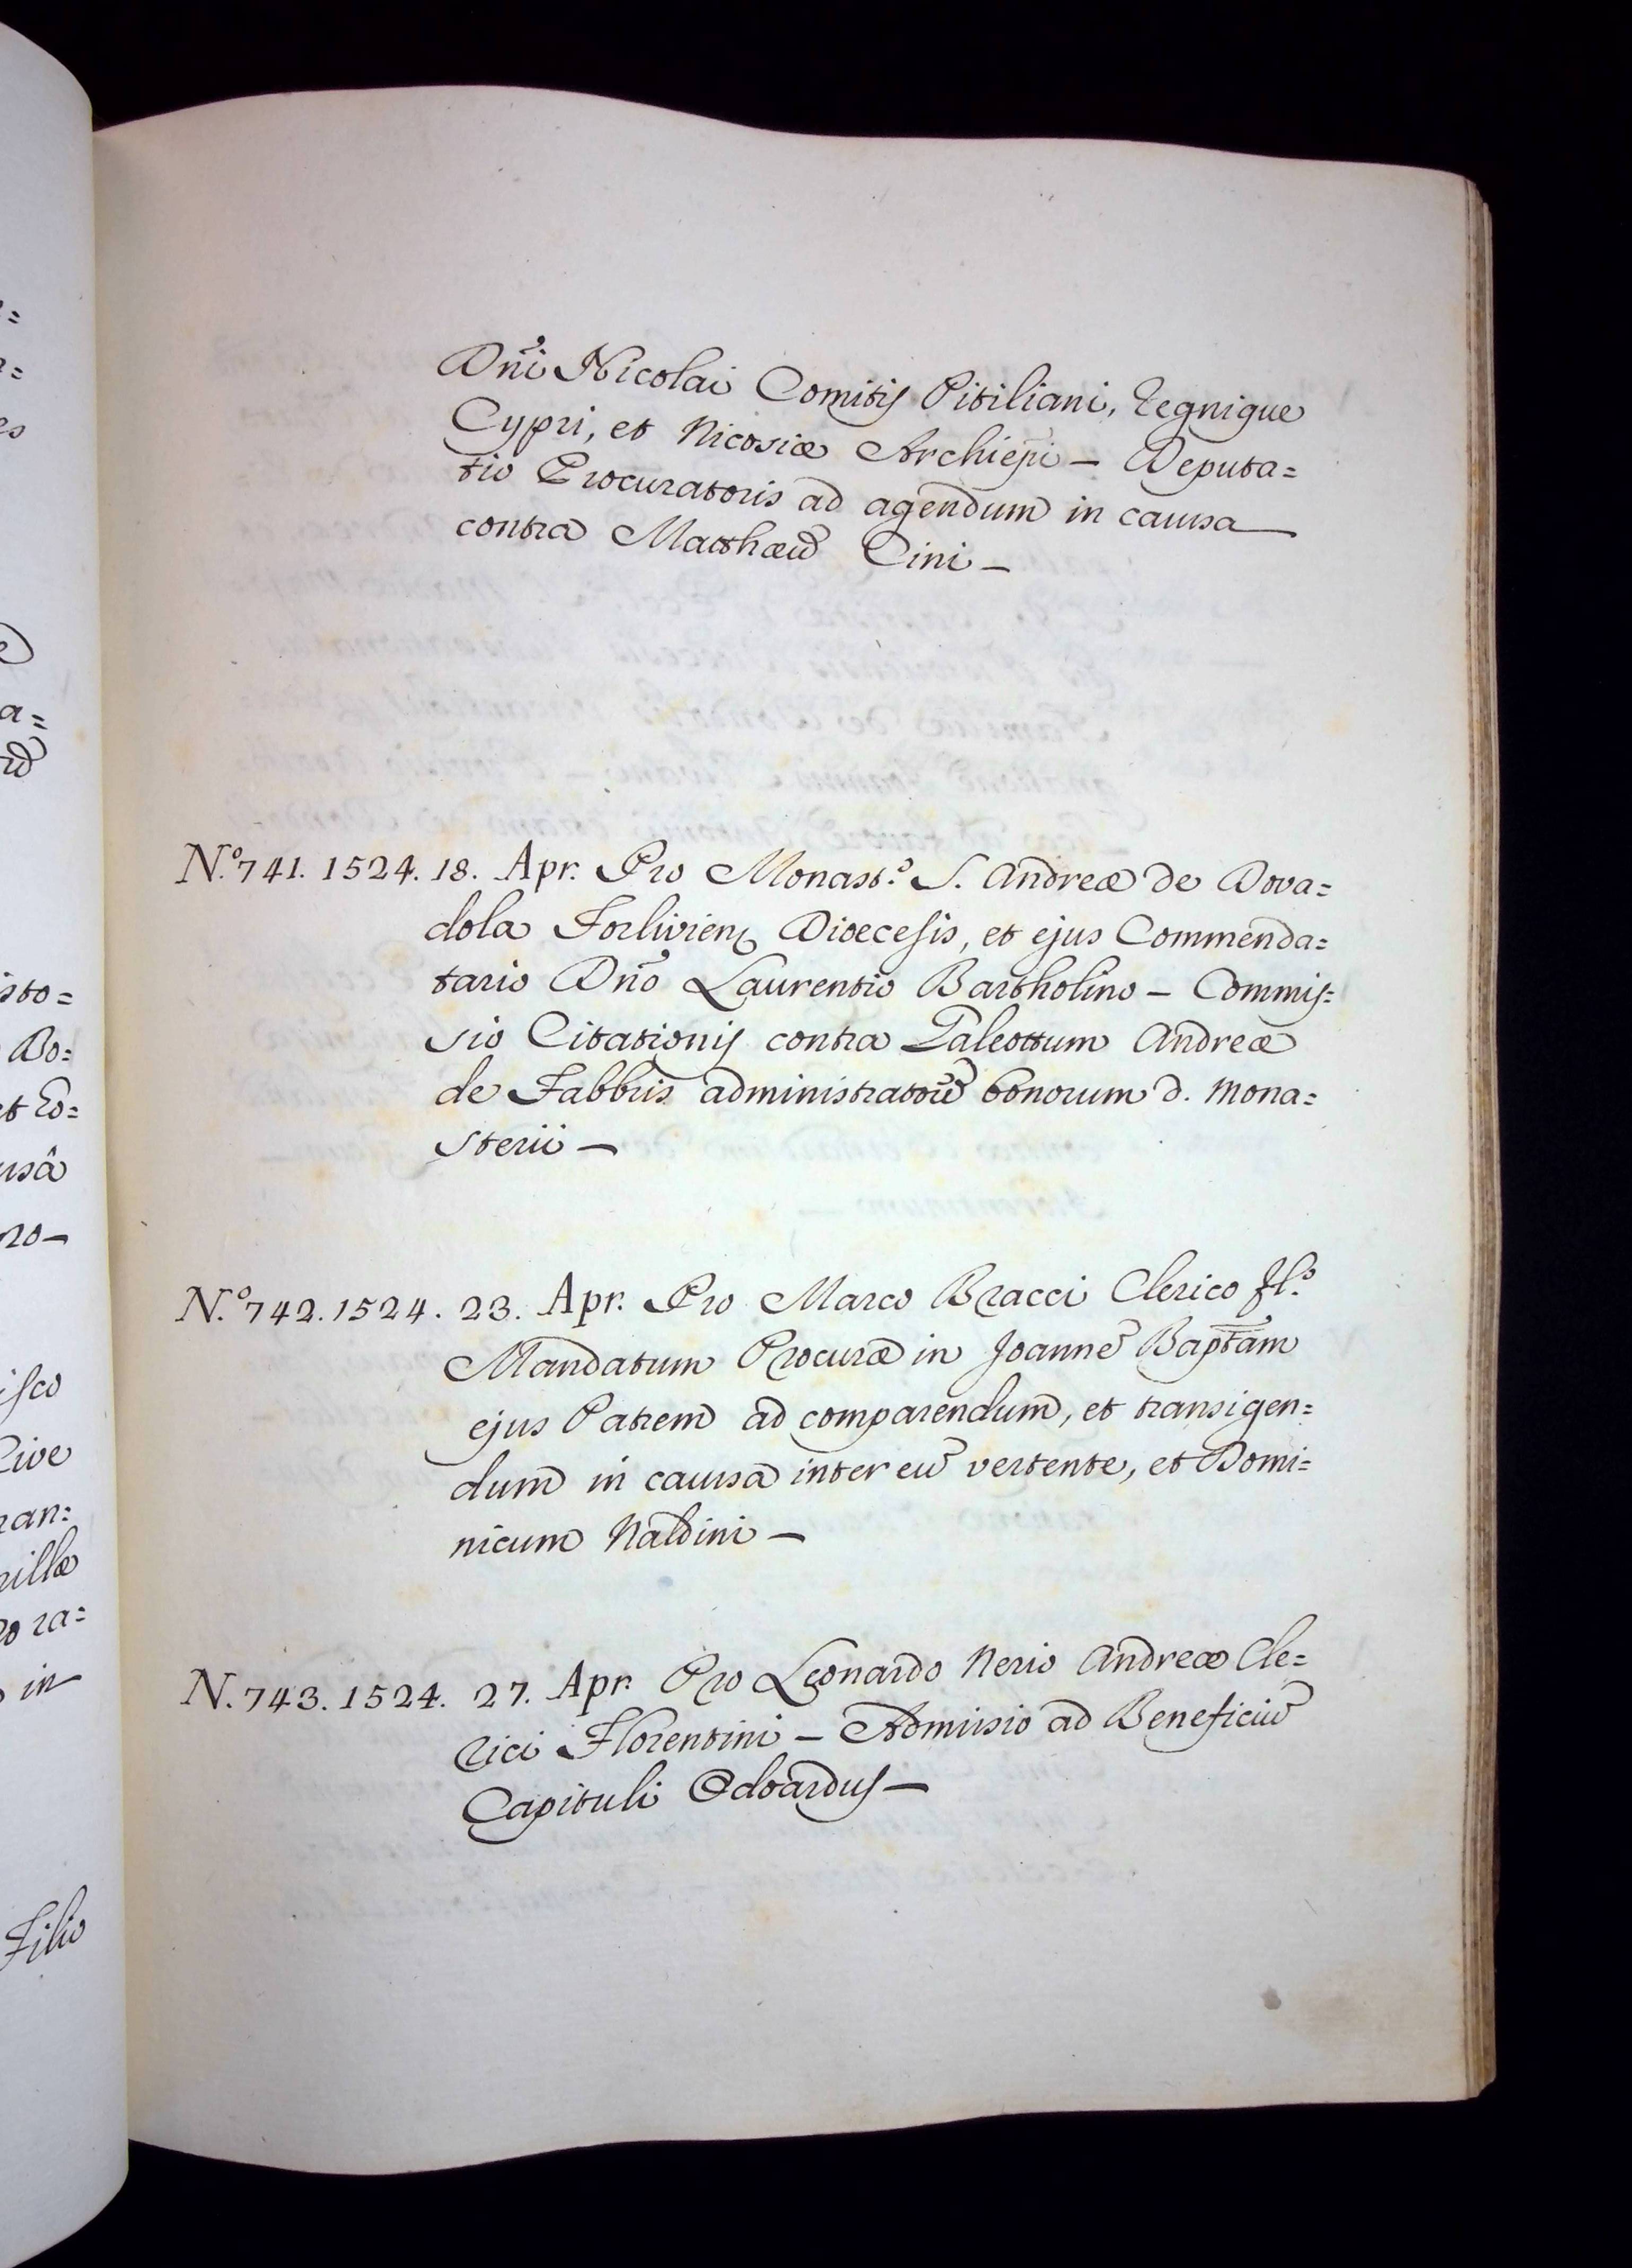 Dñi Nicolai Comitis Pitiliani, Regnique
Cypri, et Nicosiæ Archiepi — Deputa=
tio Procuratoris ad agendum in causa
contra Matthæũ Cini —
N.º 741. 1524. 18. Apr. Pro Monast.º S. Andreæ de Dova=
dola Forlivien. Dioecesis, et ejus Commenda=
tario Dño Laurentio Bartholino — Commis=
sio Citationis contra Galeottum Andreæ
de Fabbris administratorẽ bonorum d. Mona=
sterii —
N.º 742. 1524. 23. Apr. Pro Marco Bracci Clerico Fl.º
Mandatum Procuræ in Joannẽ Baptam
ejus Patrem ad comparendum, et transigen=
dum in causa inter eũ vertente, et Domi=
nicum Naldini —
N. 743. 1524. 27. Apr. Pro Leonardo Nerio Andreæ Cle=
rici Florentini — Admissio ad Beneficiũ
Capituli
isto=
Bo:
isco
Filio
in